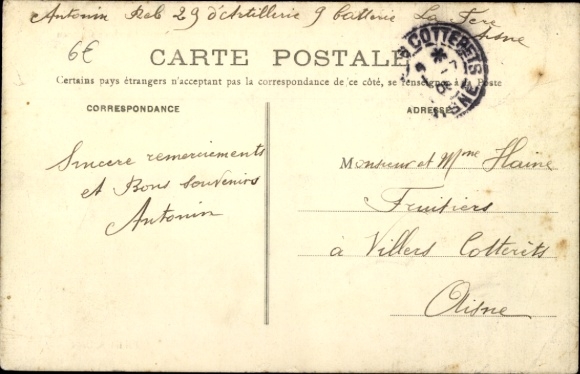 Antonin Reb 29 d'Artillerie 9 batterie La Fere
Aisne
6€
CARTE POSTALE
COTTERETS
AISNE
Certains pays étrangers n'acceptant pas la correspondance de ce côté, se renseigner à la Poste
CORRESPONDANCE
ADRESSE
Sincere remerciements
et Bons souvenirs
Antonin
Monsieur et Mme Haine
Fruitiers
à Villers Cotterêts
Aisne